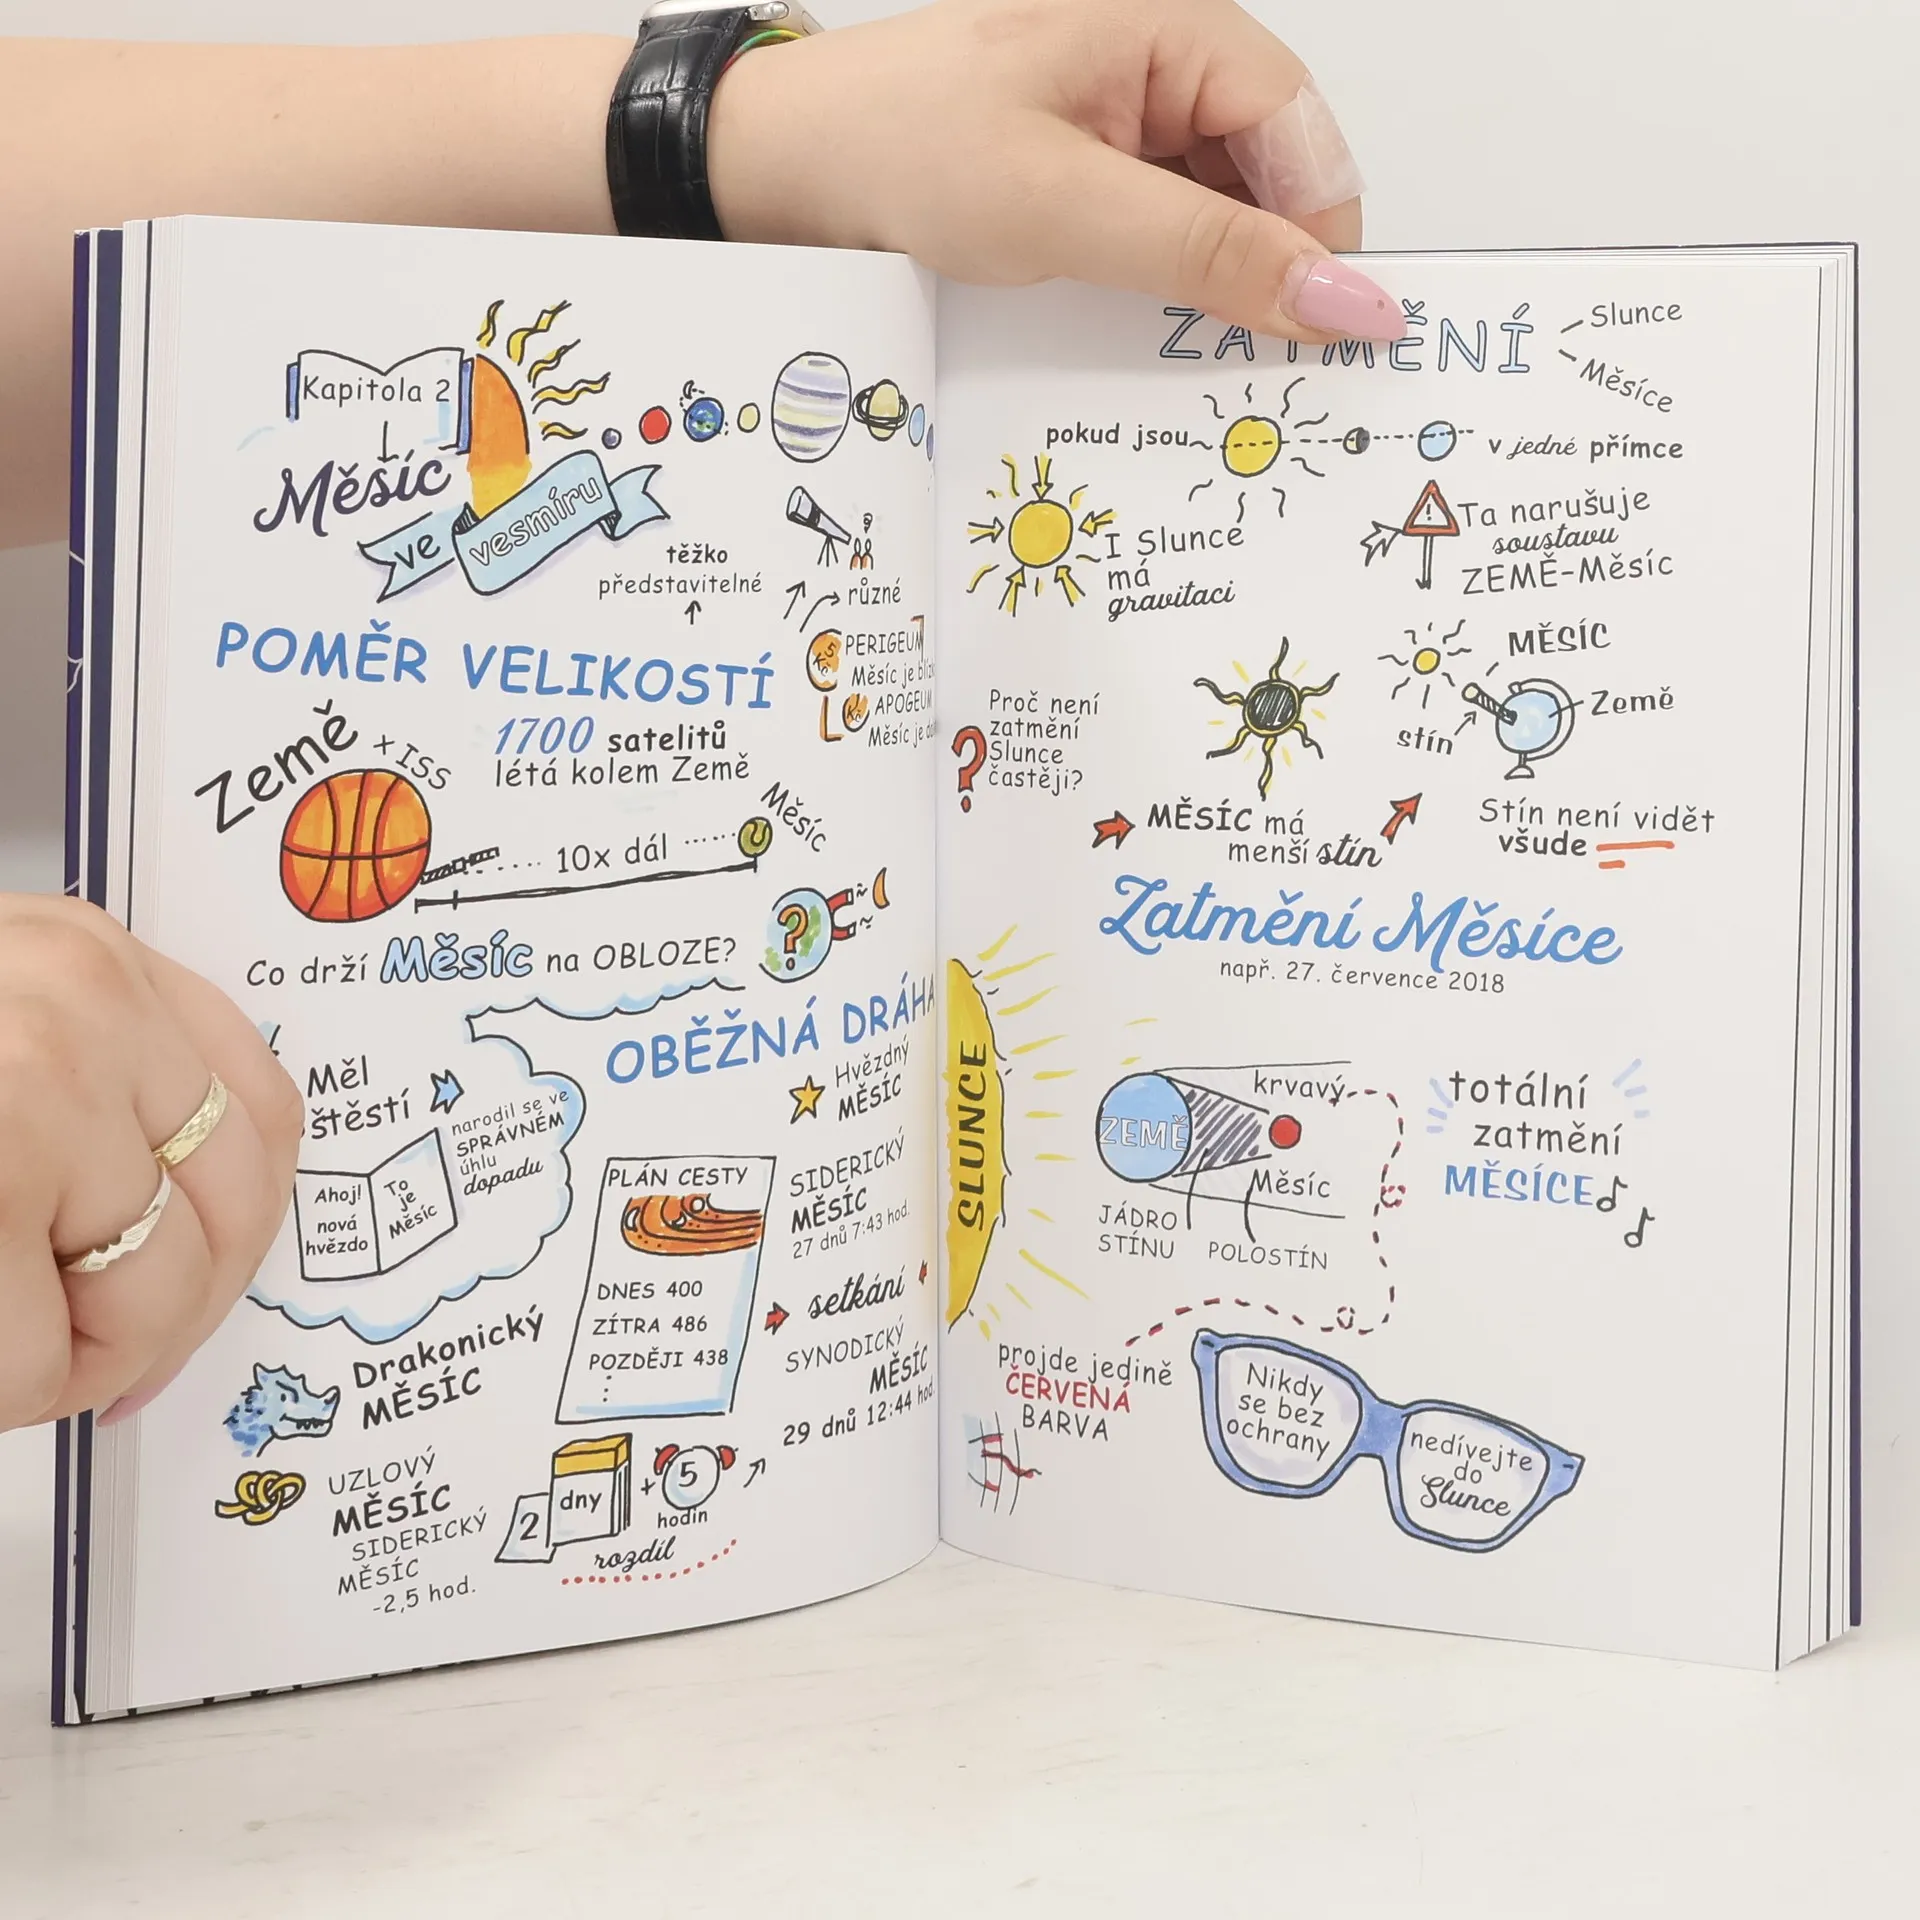 Kapitola 2
Měsíc
ve vesmíru
těžko
představitelné
různé
POMĚR VELIKOSTÍ
PERIGEUM
Měsíc je
APOGEUM
Měsíc je
Země
+ ISS
1700 satelitů
létá kolem Země
10x dál
Měsíc
Co drží Měsíc na OBLOZE?
?
OBĚŽNÁ DRÁHA
Měl
štěstí
narodil se ve
SPRÁVNÉM
úhlu
dopadu
Ahoj!
nová
hvězdo
To
je
Měsíc
Hvězdný
MĚSÍC
SIDERICKÝ
MĚSÍC
27 dnů 7:43 hod.
PLÁN CESTY
DNES 400
ZÍTRA 486
POZDĚJI 438
setkání
SYNODICKÝ
MĚSÍC
29 dnů 12:44 hod.
Drakonický
MĚSÍC
UZLOVÝ
MĚSÍC
SIDERICKÝ
MĚSÍC
-2,5 hod.
2 dny + 5
hodin
rozdíl
ZATMĚNÍ
Slunce
Měsíce
pokud jsou
v jedné přímce
I Slunce
má
gravitaci
!
Ta narušuje
soustavu
ZEMĚ-Měsíc
Proč není
zatmění
Slunce
častěji?
?
MĚSÍC
Země
stín
MĚSÍC má
menší stín
Stín není vidět
všude
Zatmění Měsíce
např. 27. července 2018
SLUNCE
ZEMĚ
krvavý
Měsíc
JÁDRO
STÍNU
POLOSTÍN
totální
zatmění
MĚSÍCE
projde jedině
ČERVENÁ
BARVA
Nikdy
se bez
ochrany
nedívejte
do
Slunce